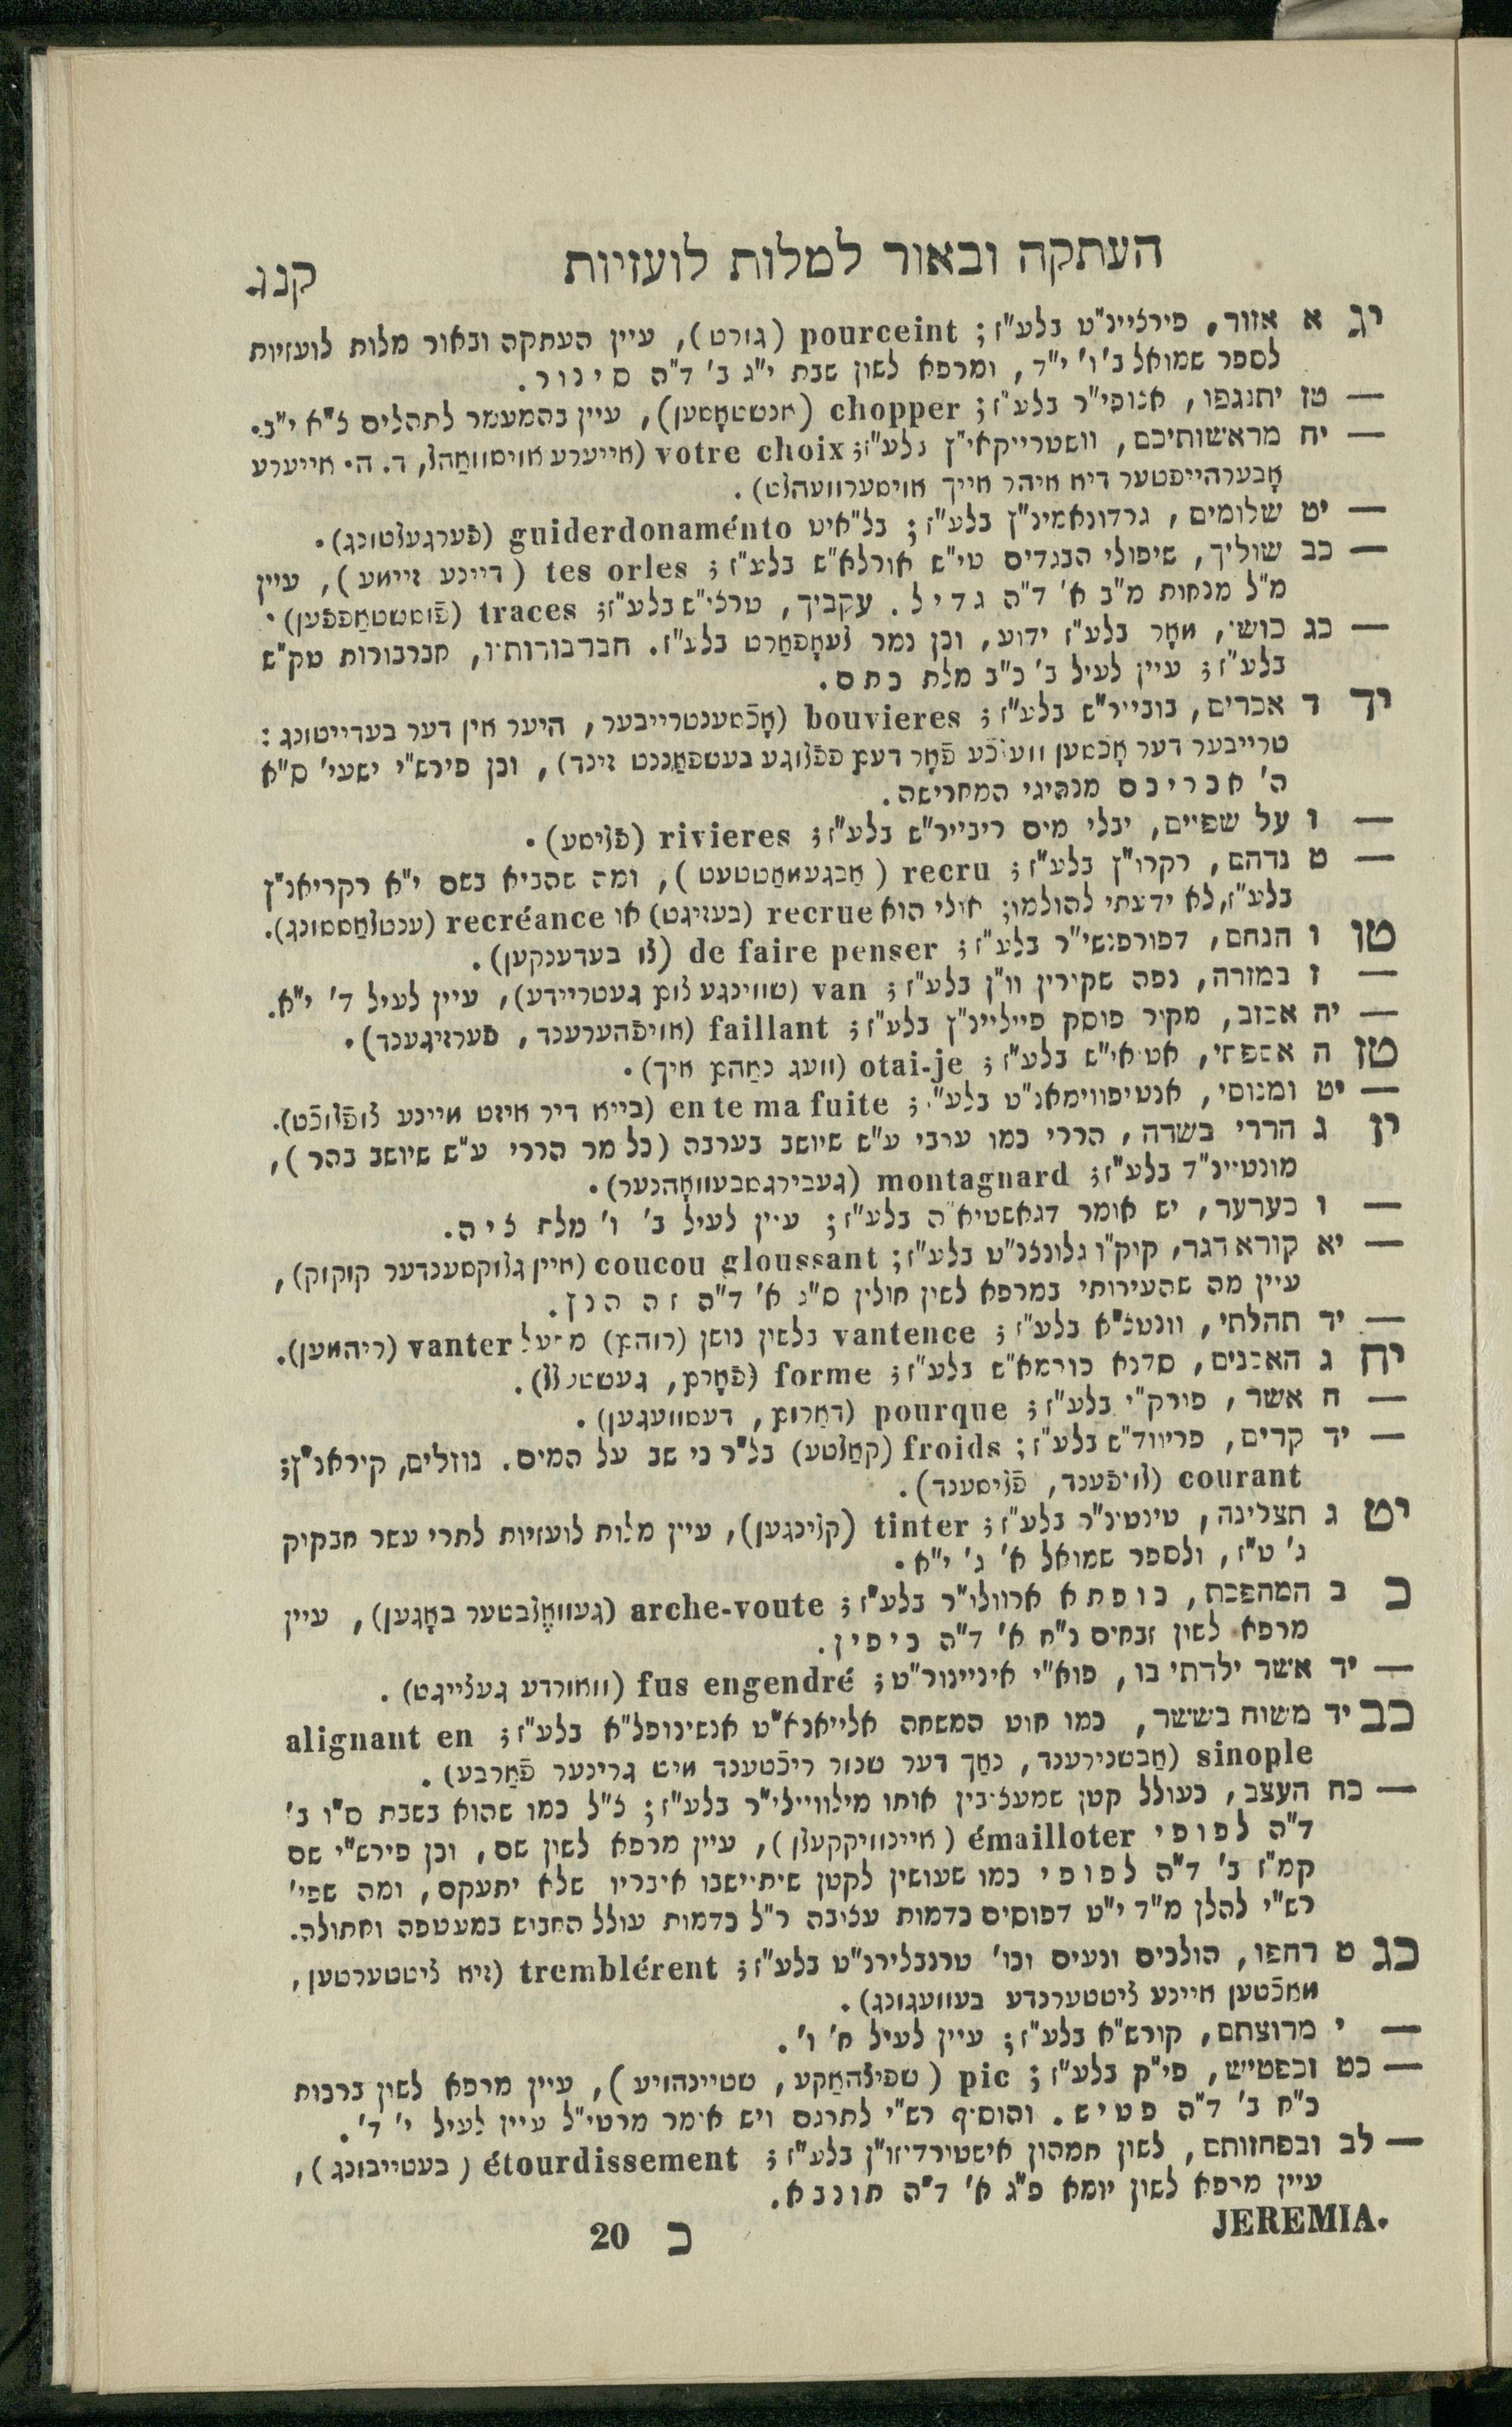 העתקה ובאור למלות לועזיות קנג
יג א אזור, פירצ״ינט בלע״ז; pourceint (גורט), עיין העתקה ובאור מלות לועזיות
לספר שמואל ב' ו' י״ד, ומרפא לשון שבת י״ג ב' ד״ה סינור.
— טז יתנגפו, אגופי״ר בלע״ז; chopper (אנשטאָסען), עיין בהמעמר לתהלים צ״א י״ב.
— יח מראשותיכם, וושטרייקאי״ץ בלע״ז; votre choix (אייערע אויסוואַהל, ד. ה. אייערע
אָבערהייפטער דיא איהר אייך אויסערוועהלט).
— יט שלומים, גרדונאמינ״ץ בלע״ז; בל״איט guiderdonaménto (פֿערגעלטונג).
— כב שוליך, שיפולי הבגדים טי״ש אורלא״ש בלע״ז; tes orles (דיינע זיימע), עיין
מ״ל מנחות מ״ב א' ד״ה גדיל. עקביך, טרצי״ש בלע״ז; traces (פֿוסשטאַפפֿען).
— כג כושי, מאָר בלע״ז ידוע, וכן נמר לעאָפּאַרט בלע״ז. חברבורותיו, חברבורות טק״ש
בלע״ז; עיין לעיל ב' כ״ב מלת כתם.
יד ד אכרים, בובייר״ש בלע״ז; bouvieres (אָכֿסענטרייבער, היער אין דער בעדייטונג:
טרייבער דער אָכסען וועלכֿע פֿאָר דעם פפֿלוגע בעשפּאַננט זינד), וכן פירש״י ישעי' ס״א
ה' אכריכם מנהיגי המחרישה.
— ו על שפיים, יבלי מים ריבייר״ש בלע״ז; rivieres (פֿליסע).
— ט נדהם, רקרו״ץ בלע״ז; recru (אַבגעמאַטטעט), ומה שהביא בשם י״א רקריאנ״ץ
בלע״ז, לא ידעתי להולמו; אולי הוא recrue (בעזיגט) או recréance (ענטלאַססונג).
טו ו הנחם, דפורפנשי״ר בלע״ז; de faire penser (צו בעדענקען).
— ז במזרה, נפה שקירין וו״ן בלע״ז; van (שווינגע צום געטריידע), עיין לעיל ד' י״א.
— יח אכזב, מקיר פוסק פייליינ״ץ בלע״ז; faillant (אויפֿהערענד, פֿערזיגענד).
טז ה אספתי, אטאי״ש בלע״ז; otai-je (וועג נאַהם איך).
— יט ומנוסי, אנטיפווימאנ״ט בלע״ז; en te ma fuite (בייא דיר איזט מיינע צופֿלוכֿט).
יז ג הררי בשדה, הררי כמו ערבי ע״ש שיושב בערבה (כלומר הררי ע״ש שיושב בהר),
מונטיינ״ד בלע״ז; montagnard (געבירגסבעוואָהנער).
— ו כערער, יש אומר דגאשטיא״ה בלע״ז; עיין לעיל ב' ו' מלת ציה.
— יא קורא דגר, קוק״ו גלונצנ״ט בלע״ז; coucou gloussant (איין גלוקסענדער קוקוק),
עיין מה שהעירותי במרפא לשון חולין ס״ג א' ד״ה זה הנץ.
— יד תהלתי, וונטנ״א בלע״ז; vantence בלשון נושן (רוהם) מפעל vanter (ריהמען).
יח ג האבנים, סדנא פורמא״ש בלע״ז; forme (פֿאָרם, געשטעל).
— ח אשר, פורק״י בלע״ז; pourque (דאַרום, דעסוועגען).
— יד קרים, פריווד״ש בלע״ז; froids (קאַלטע) בל״ר כי שב על המים. נוזלים, קיראנ״ץ;
courant (לויפֿענד, פֿליסענד).
יט ג תצלינה, טינטינ״ר בלע״ז; tinter (קלינגען), עיין מלות לועזיות לתרי עשר חבקוק
ג' ט״ז, ולספר שמואל א' ג' י״א.
כ ב המהפכת, כופתא ארוולי״ר בלע״ז; arche-voute (געוועֶלבטער באָגען), עיין
מרפא לשון זבחים נ״ח א' ד״ה כיפין.
— יד אשר ילדתי בו, פוא״י איניינור״ט; fus engendré (וואורדע געצייגט).
כב יד משוח בששר, כמו חוט המשחה אלייאנא״ט אנשינופל״א בלע״ז; alignant en
sinople (אַבשנירענד, נאַך דער שנור ריכֿטענד מיט גרינער פֿאַרבע).
— כח העצב, כעולל קטן שמעצבין אותו מילוויילי״ר בלע״ז; צ״ל כמו שהוא בשבת ס״ו ב'
ד״ה לפופי émailloter (איינוויקקעלן), עיין מרפא לשון שם, וכן פירש״י שם
קמ״ז ב' ד״ה לפופי כמו שעושין לקטן שיתיישבו איבריו שלא יתעקם, ומה שפי'
רש״י להלן מ״ד י״ט דפוסים כדמות עציבה ר״ל כדמות עולל החביש במעטפה וחתולה.
כג ט רחפו, הולכים ונעים וכו' טרנבלירנ״ט בלע״ז; tremblérent (זיא ציטטערטען,
מאַכֿטען איינע ציטטערנדע בעוועגונג).
— י מרוצתם, קורש״א בלע״ז; עיין לעיל ח' ו'.
— כט וכפטיש, פי״ק בלע״ז; pic (שפיצהאַקע, שטיינהויע), עיין מרפא לשון ברכות
כ״ח ב' ד״ה פטיש. והוסיף רש״י לתרגם ויש אומר מרטי״ל עיין לעיל י' ד'.
— לב ובפחזותם, לשון תמהון אישטירדיזו״ן בלע״ז; étourdissement (בעטייבונג),
עיין מרפא לשון יומא פ״ג א' ד״ה תונבא.
JEREMIA. כ 20